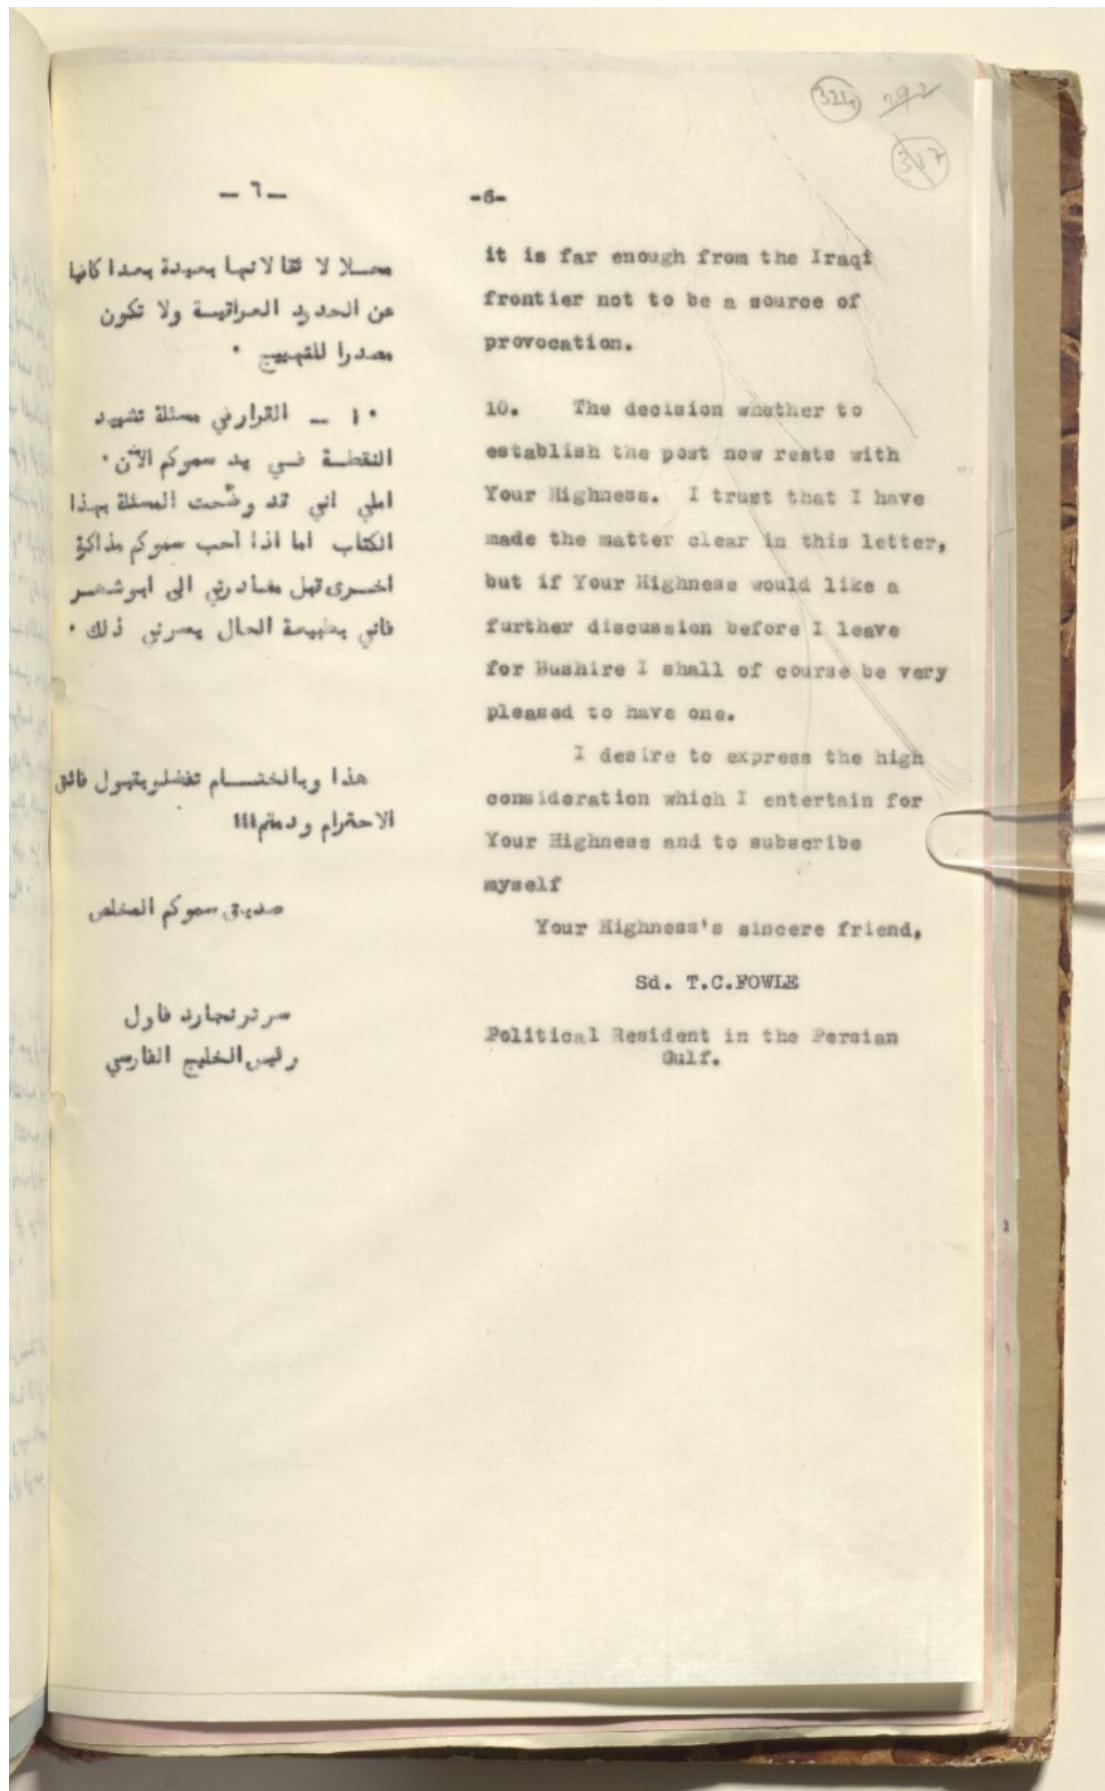 324 292
317
— ٦ —
محلا لا ئقا لانها بعيدة بعدا كافيا
عن الحدود العراقية ولا تكون
مصدرا للتهييج ٠
١٠ — القرار في مسئلة تشييد
النقطة في يد سموكم الآن ٠
املي اني قد وضّحت المسئلة بهذا
الكتاب اما اذا احب سموكم مذاكرة
اخرى قبل مغادرتي الى ابوشهر
فاني بطبيعة الحال يسرني ذلك ٠
هذا وبالختام تفضلوبقبول فائق
الاحترام ودمتم ااا
صديق سموكم المخلص
سر ترنجارد فاول
رئيس الخليج الفارسي
-6-
it is far enough from the Iraqi
frontier not to be a source of
provocation.
10. The decision whether to
establish the post now rests with
Your Highness. I trust that I have
made the matter clear in this letter,
but if Your Highness would like a
further discussion before I leave
for Bushire I shall of course be very
pleased to have one.
I desire to express the high
consideration which I entertain for
Your Highness and to subscribe
myself
Your Highness's sincere friend,
Sd. T.C.FOWLE
Political Resident in the Persian
Gulf.